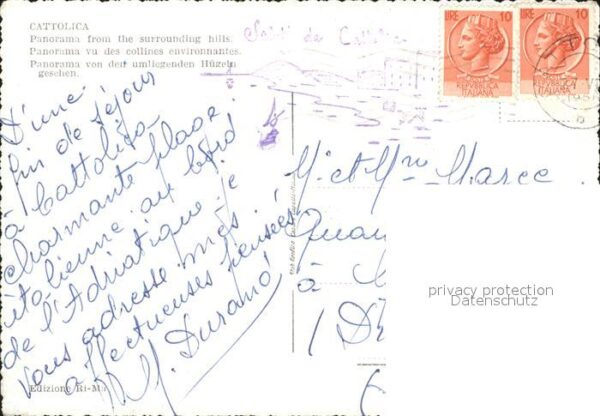 CATTOLICA
Panorama from the surrounding hills.
Panorama vu des collines environnantes.
Panorama von den umliegenden Hügeln
gesehen.
D'une
fin de séjour
à Cattolica
charmante plage
italienne au bord
de l'Adriatique je
vous adresse mes
affectueuses pensées
M. Durand
Edizione Ri-Ma
Saluti da Cattolica
LIRE 10
REPVBBLICA
ITALIANA
LIRE 10
REPVBBLICA
ITALIANA
M. et Mme Marce
Quan
à
(D
privacy protection
Datenschutz